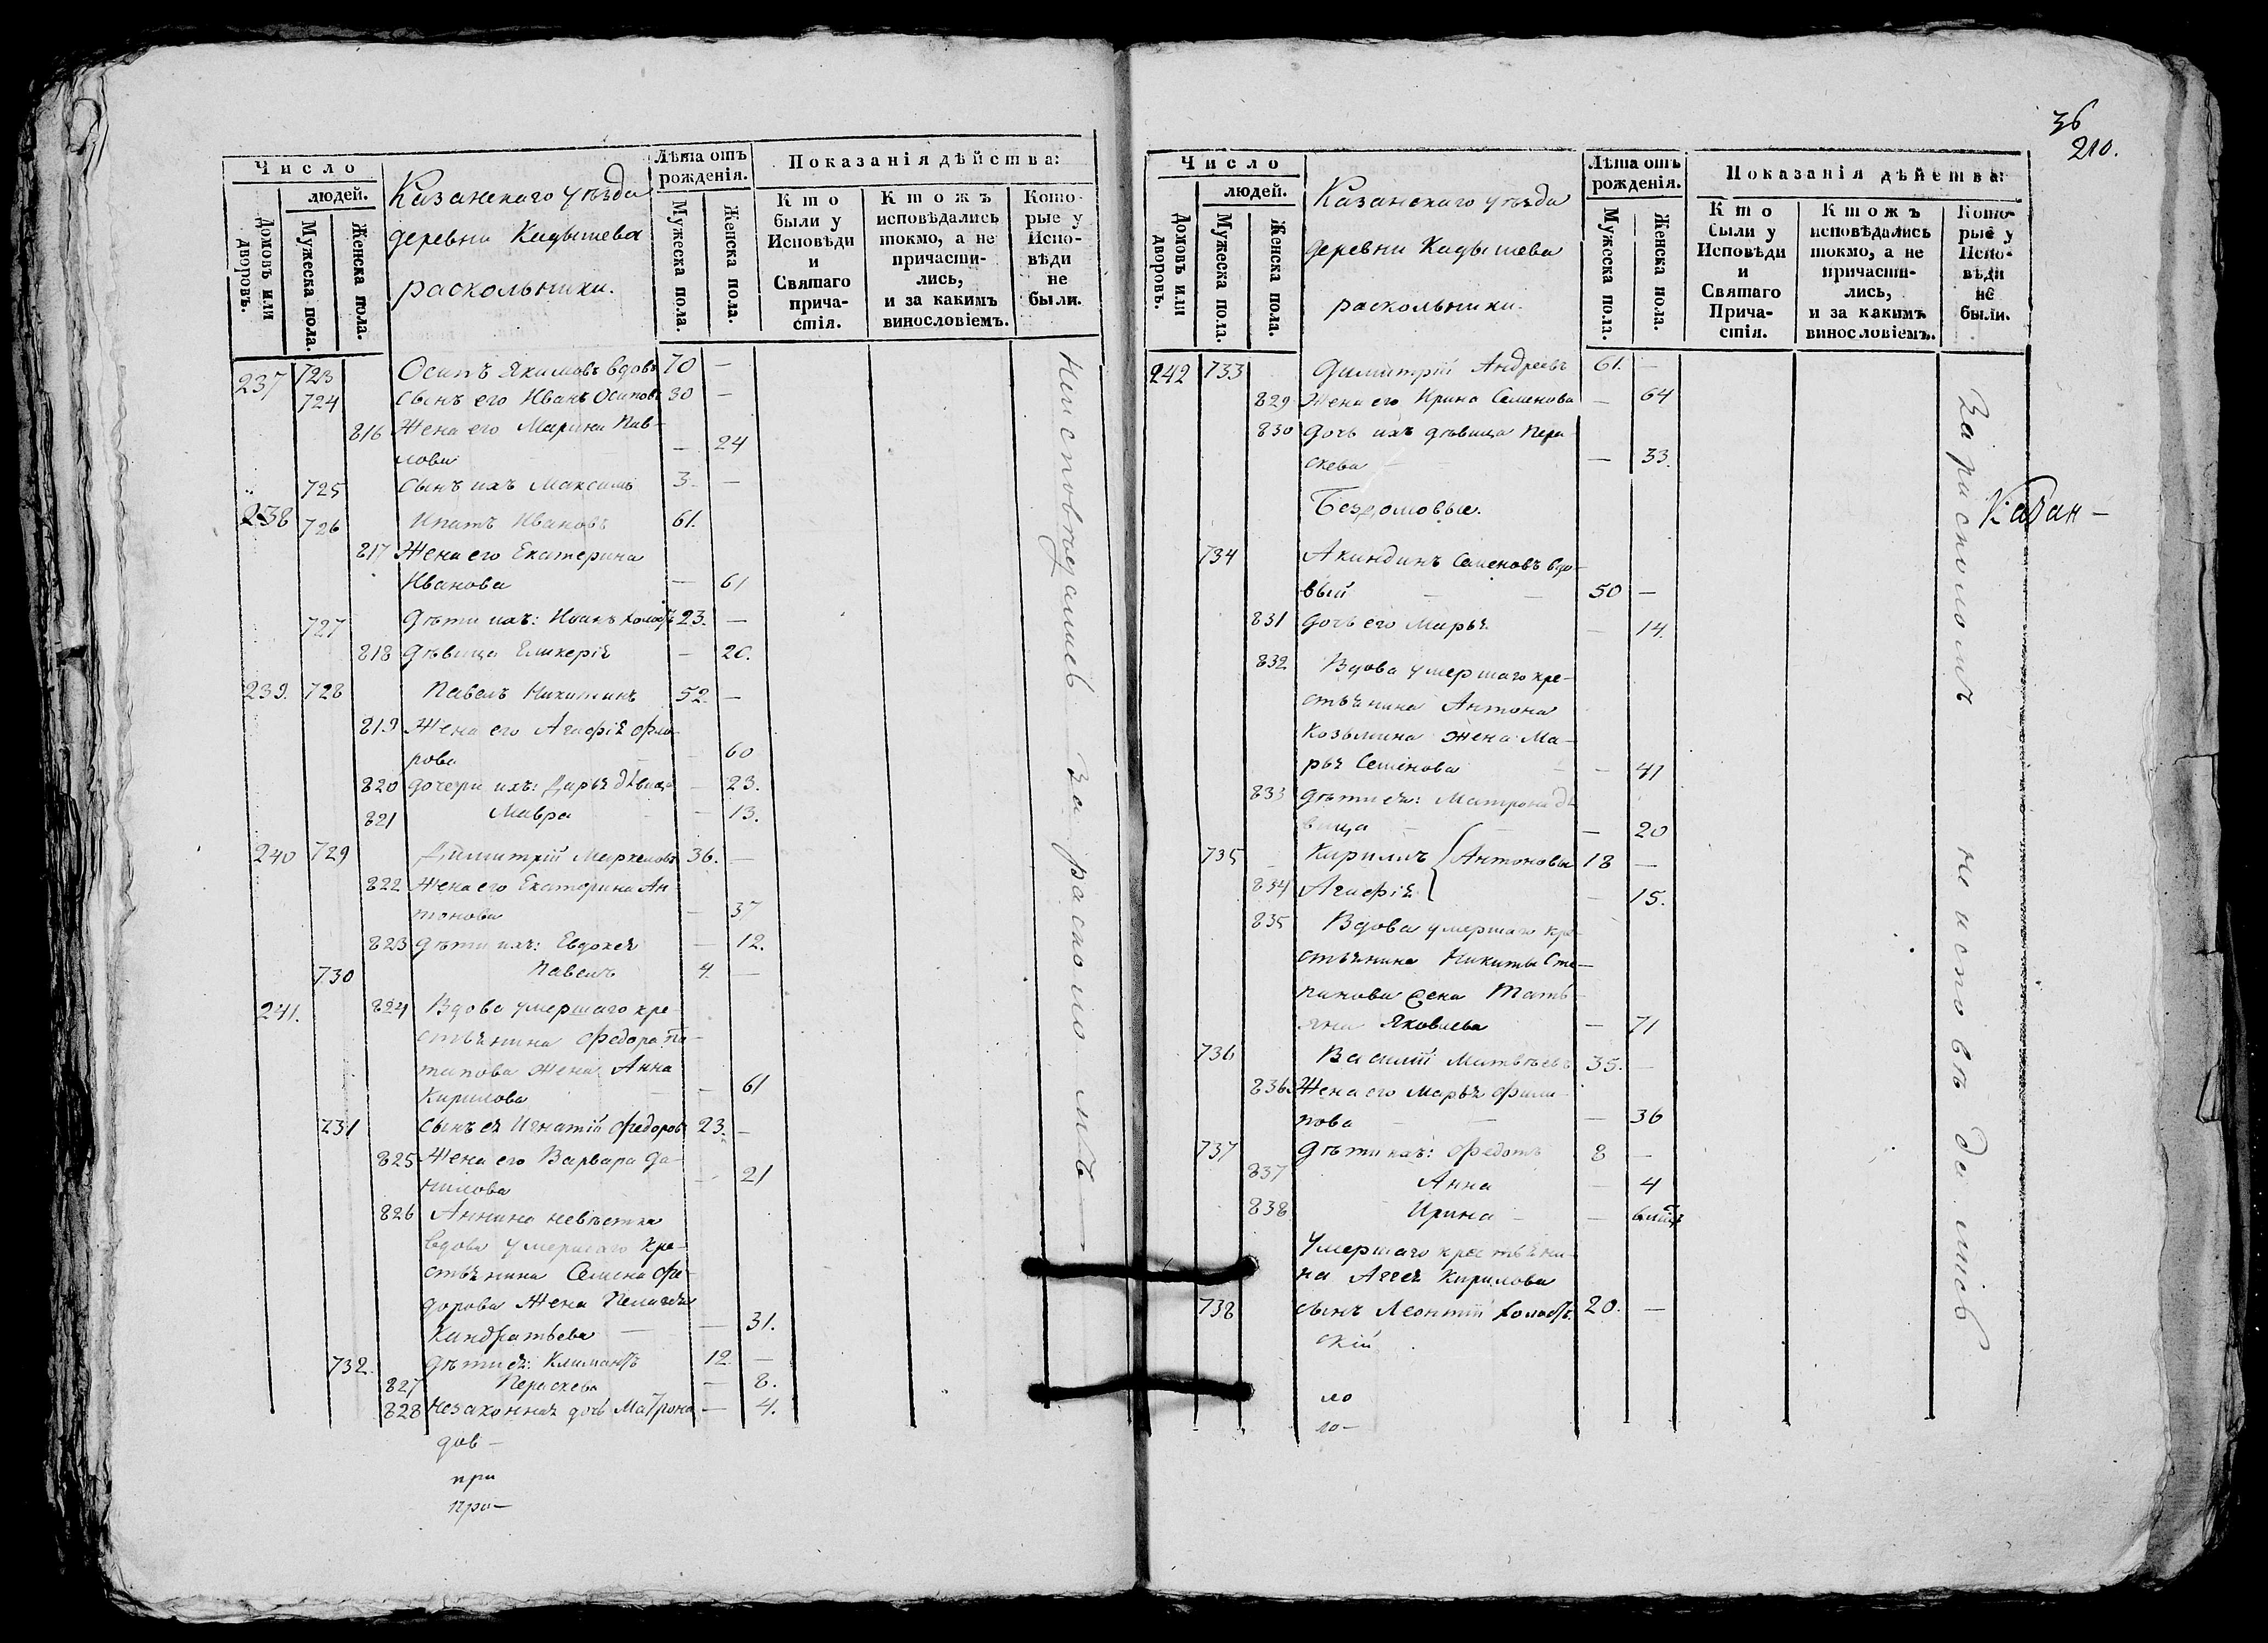 Число
людей.
Домовъ или дворовъ.
Мужеска пола.
Женска пола.
Казанскаго уѣзда
деревни Кадышева
раскольники.
Лѣта отъ рожденія.
Мужеска пола.
Женска пола.
Показанія дѣйства:
Кто были у Исповѣди и Святаго причастія.
Ктожъ исповѣдались токмо, а не причастились, и за какимъ винословіемъ.
Которые у Исповѣди не были.
237 723 Осипъ Якимовъ вдовъ 70 —
724 Сынъ его Иванъ Осиповъ 30 —
816 Жена его Марина Пав-
лова — 24
725 Сынъ ихъ Максимъ 3. —
238 726 Ипатъ Ивановъ 61.
817 Жена его Екатерина
Иванова — 61
727 Дѣти ихъ: Иванъ холостъ 23. —
818 дѣвица Гликерія — 20.
239. 728 Павелъ Никитинъ 52. —
819 Жена его Агафія Фло-
рова — 60
820 дочери ихъ: Дарья дѣвица — 23.
821 Мавра — 13.
240 729 Димитрій Меркеловъ 36. —
822 Жена его Екатерина Ан-
тонова — 37
823 Дѣти ихъ: Евдокея — 12.
730 Павелъ 4. —
241. 824 Вдова умершаго кре-
стьянина Федора По-
тапова жена Анна
Кирилова — 61
731 Сынъ ея Игнатій Федоровъ 23. —
825 Жена его Варвара Да-
нилова — 21
826 Аннина невѣстка
вдова умершаго кре-
стьянина Семена Фе-
дорова жена Пелагея
Кандратьева — 31.
732. Дѣти ея: Климантъ 12. —
827 Пераскева — 8.
828 Незаконная дочь Матрона — 4.
дов —
при
про —
Неисповѣдались за расколомъ
36
210.
Число
людей.
Домовъ или дворовъ.
Мужеска пола.
Женска пола.
Казанскаго уѣзда
деревни Кадышева
раскольники.
Лѣта отъ рожденія.
Мужеска пола.
Женска пола.
Показанія дѣйства:
Кто были у Исповѣди и Святаго Причастія.
Ктожъ исповѣдались токмо, а не причастились, и за какимъ винословіемъ.
Которые у Исповѣди не были.
242 733 Димитрій Андреевъ 61. —
829 Жена его Ирина Семенова — 64
830 дочь ихъ дѣвица Пера-
скева — 33.
Бездомовые.
734 Акиндинъ Семеновъ вдо-
вый 50 —
831 дочь его Марья — 14.
832 Вдова умершаго кре-
стьянина Антона
Козьмина жена Ма-
рья Семенова — 41
833 дѣти ея: Матрона дѣ-
вица — 20
735 Кирилъ Антоновы 18 —
834 Агафія — 15.
835 Вдова умершаго кре-
стьянина Никиты Сте-
панова жена Тать-
яна Яковлева — 71
736 Василій Матвѣевъ 35. —
836. Жена его Марья Фили-
пова — 36
737 Дѣти ихъ: Федотъ 8 —
837 Анна — 4
838 Ирина — 6 мѣсяц
Умершаго крестьяни-
на Аггея Кирилова
738 сынъ Леонтій холостъ. 20. —
скій
ло
ло —
За расколомъ не исповѣдались
Казан —